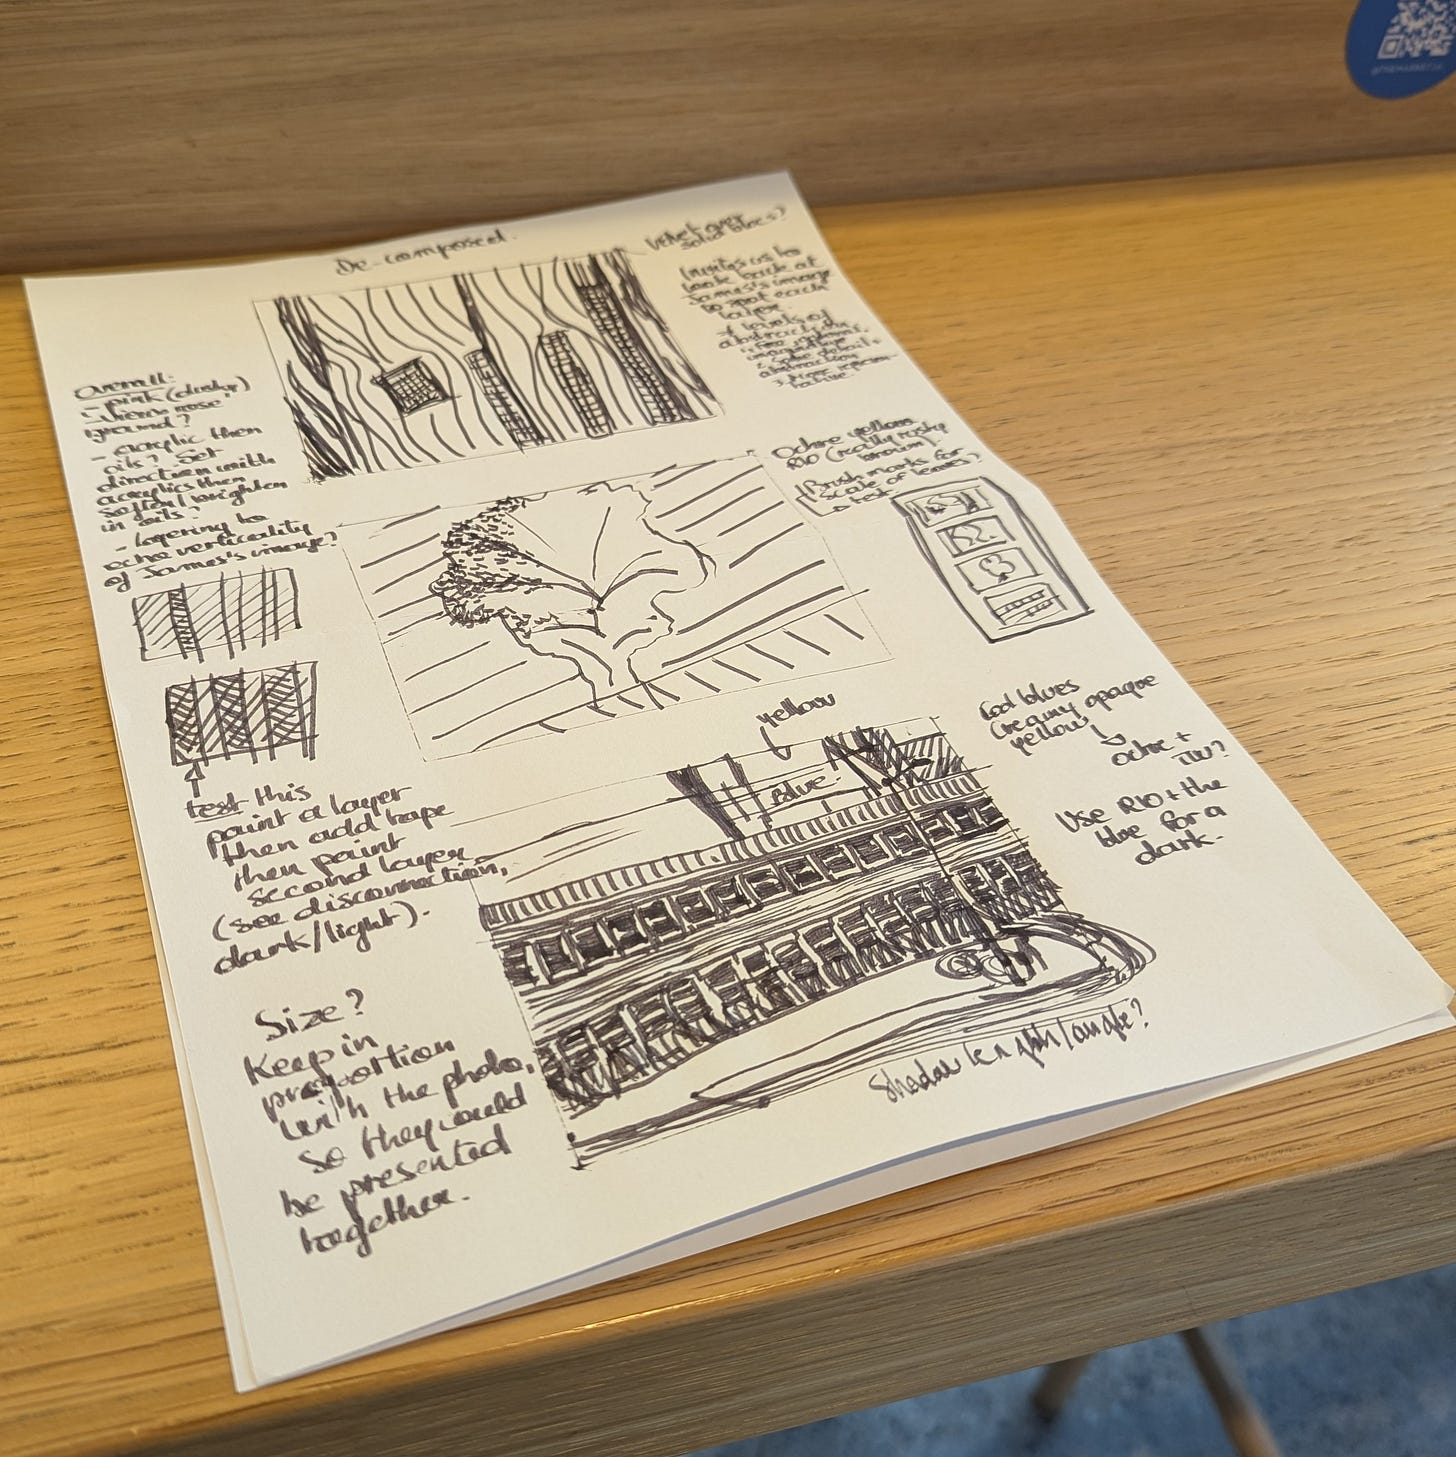 De-composed.
over
solid blocs?
Invites us to
look back at
James's image
to spot each
layer.
levels of
abstraction
Overall:
- pink (dusky)
rose'
ground?
- acrylic then
oils? Set
direction with
acrylics then
soften/brighten
in oils.
- layering to
echo verticality
of James's image?
Ochre yellow
R10 (really rusty
brown).
Brush marks for
scale of leaves?
test
test this
paint a layer
then add tape
then paint
second layer
(see disconnection,
dark/light).
yellow
Blue.
blues
Creamy opaque
yellow
Ochre +
TW?
Use R10 + the
blue for a
dark.
Size?
Keep in
proportion
with the photo,
so they could
be presented
together.
Shadow length/angle?